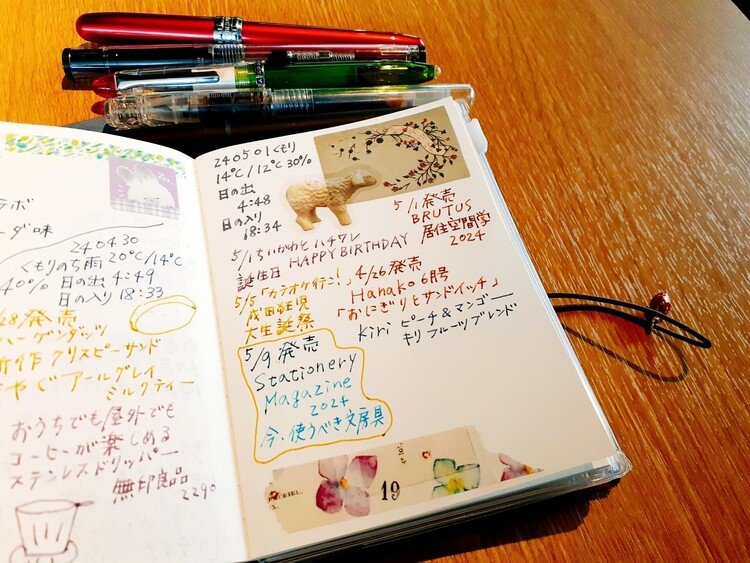 ラボ
ダ味
240430
くもりのち雨 20℃/14℃
40% 日の出 4:49
日の入り 18:33
28発売
ハーゲンダッツ
新作 クリスピーサンド
アールグレイ
ミルクティー
おうちでも屋外でも
コーヒーが楽しめる
ステンレスドリッパー
無印良品
2290
240501 くもり
14℃/12℃ 30%
日の出
4:48
日の入り
18:34
5/1 ちいかわとハチワレ
誕生日 HAPPY BIRTHDAY
5/5「カラオケ行こ!」
成田狂児
大生誕祭
5/9 発売
Stationery
Magazine
2024
今、使うべき文房具
5/1発売
BRUTUS
居住空間学
2024
4/26発売
Hanako 6月号
「おにぎりとサンドイッチ」
Kiri ピーチ&マンゴー
キリ フルーツブレンド
19